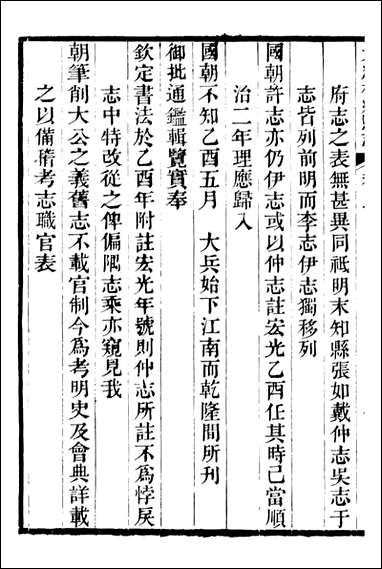 府志之表無甚異同祗明末知縣張如戴仲志吳志于
志皆列前明而李志伊志獨移列
國朝許志亦仍伊志或以仲志註宏光乙酉任其時已當順
治二年理應歸入
國朝不知乙酉五月　大兵始下江南而乾隆間所刊
御批通鑑輯覽實奉
欽定書法於乙酉年附註宏光年號則仲志所註不為悖戾
志中特改從之俾偏隅志乘亦窺見我
朝筆削大公之義舊志不載官制今為考明史及會典詳載
之以備稽考志職官表